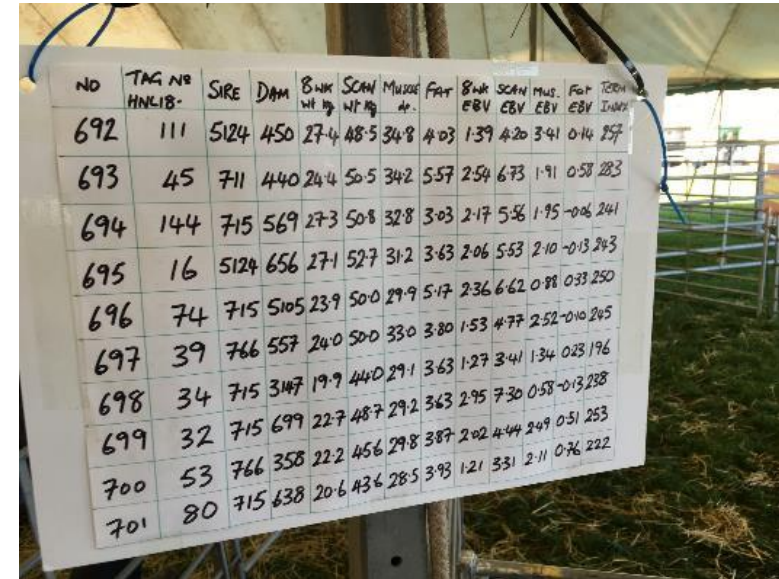 NO TAG Nº HNL18- SIRE DAM 8WK Wt kg SCAN Wt Kg MUSCLE de. FAT 8WK EBV SCAN EBV MUS. EBV FAT EBV TERM INDEX
692 111 5124 450 27.4 48.5 34.8 4.03 1.39 4.20 3.41 0.14 257
693 45 711 440 24.4 50.5 34.2 5.57 2.54 6.73 1.91 0.58 283
694 144 715 569 27.3 50.8 32.8 3.03 2.17 5.56 1.95 -0.06 241
695 16 5124 656 27.1 52.7 31.2 3.63 2.06 5.53 2.10 -0.13 243
696 74 715 5105 23.9 50.0 29.9 5.17 2.36 6.62 0.88 0.33 250
697 39 766 557 24.0 50.0 33.0 3.80 1.53 4.77 2.52 -0.10 245
698 34 715 3147 19.9 44.0 29.1 3.63 1.27 3.41 1.34 0.23 196
699 32 715 699 22.7 48.7 29.2 3.63 2.95 7.30 0.58 -0.13 238
700 53 766 358 22.2 45.6 29.8 3.87 2.02 4.44 2.49 0.51 253
701 80 715 638 20.6 43.6 28.5 3.93 1.21 3.31 2.11 0.76 222